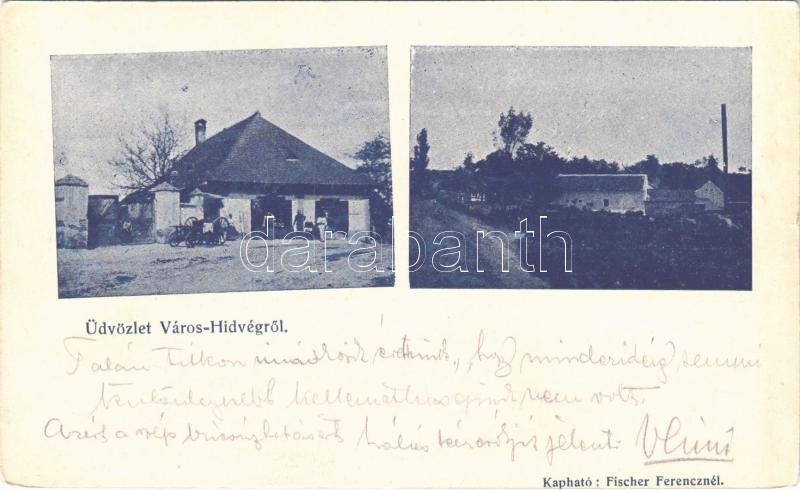 darabanth
Üdvözlet Város-Hidvégről.
Talán titkon imádkozik értünk, hogy mindezideig semmi
kellemetlenségünk nem volt.
Azért a szép búcsúztatásért hálás köszönetét jelenti
Kapható : Fischer Ferencznél.